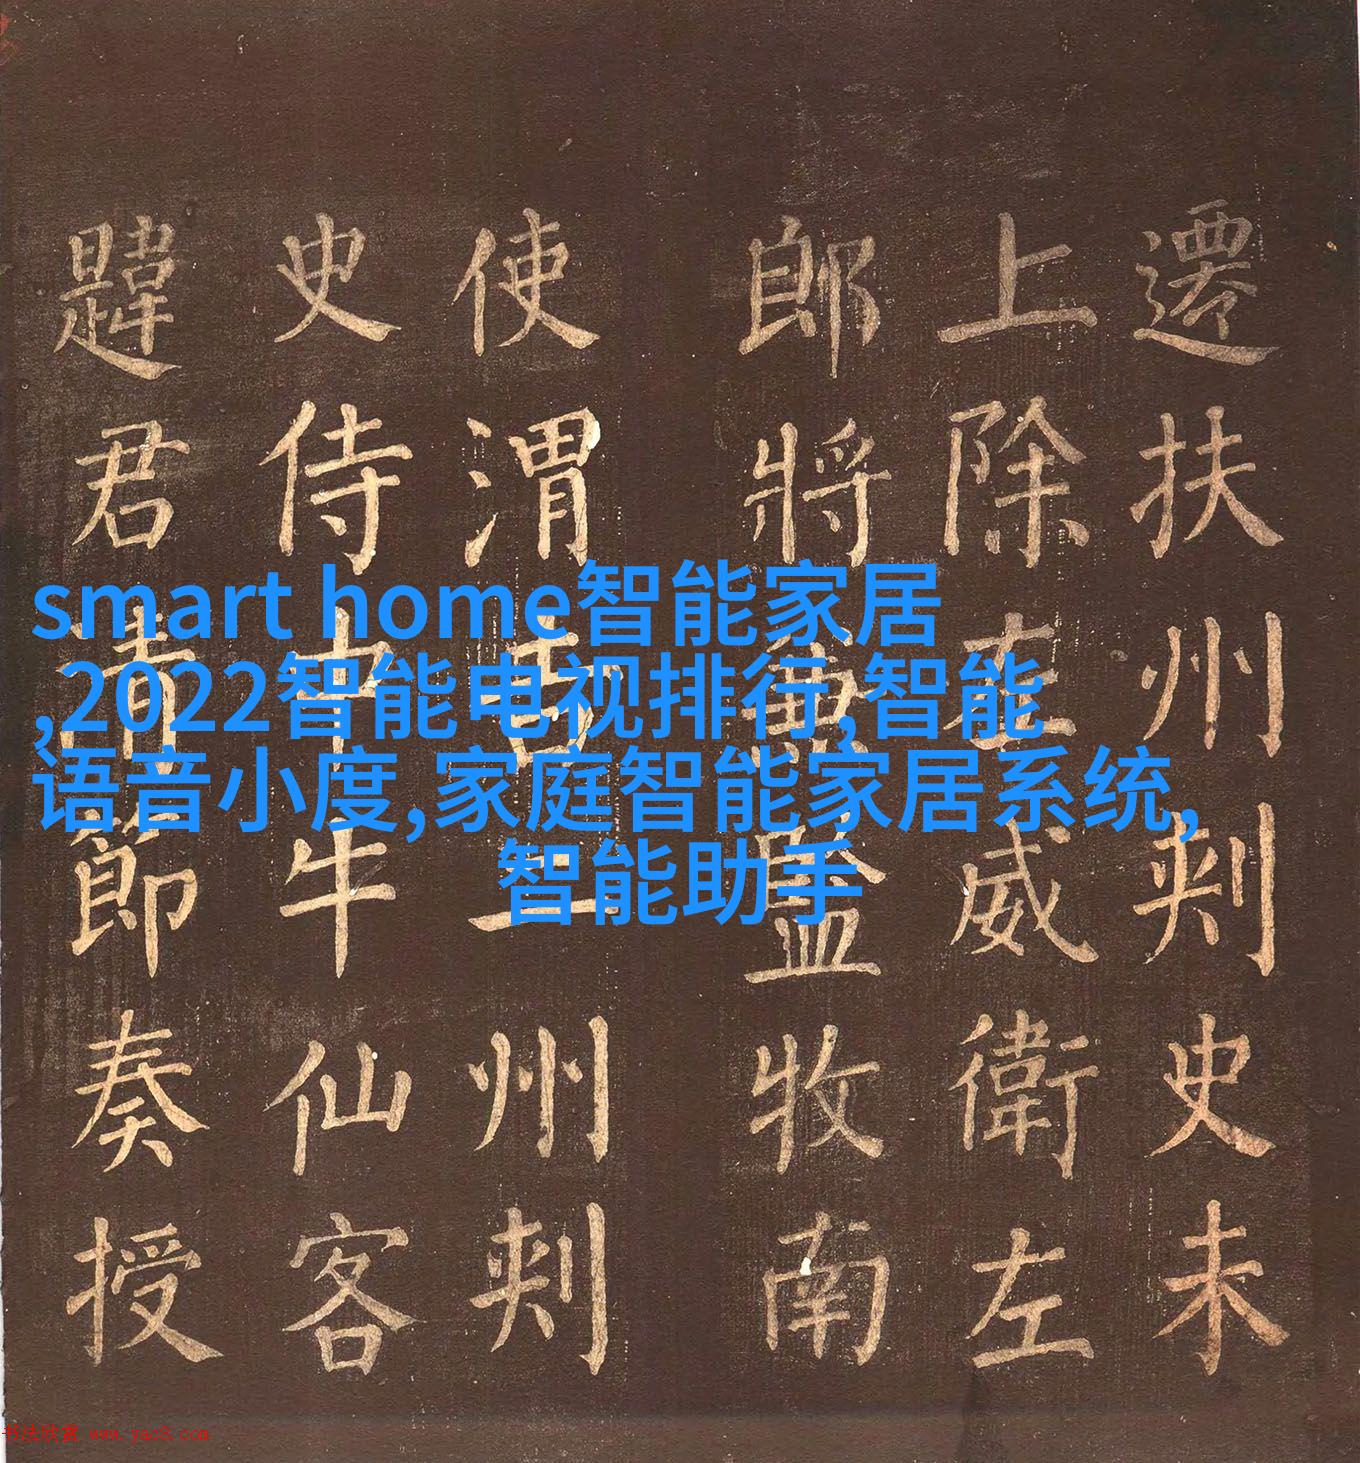 遷扶州刺史未
上除左威衛左
郎將兼監牧南
使渭吉二州刺
史侍中牛仙客
韙君清節奏授
smart home智能家居
,2022智能电视排行,智能
语音小度,家庭智能家居系统,
智能助手
书法欣赏 www.yac8.com